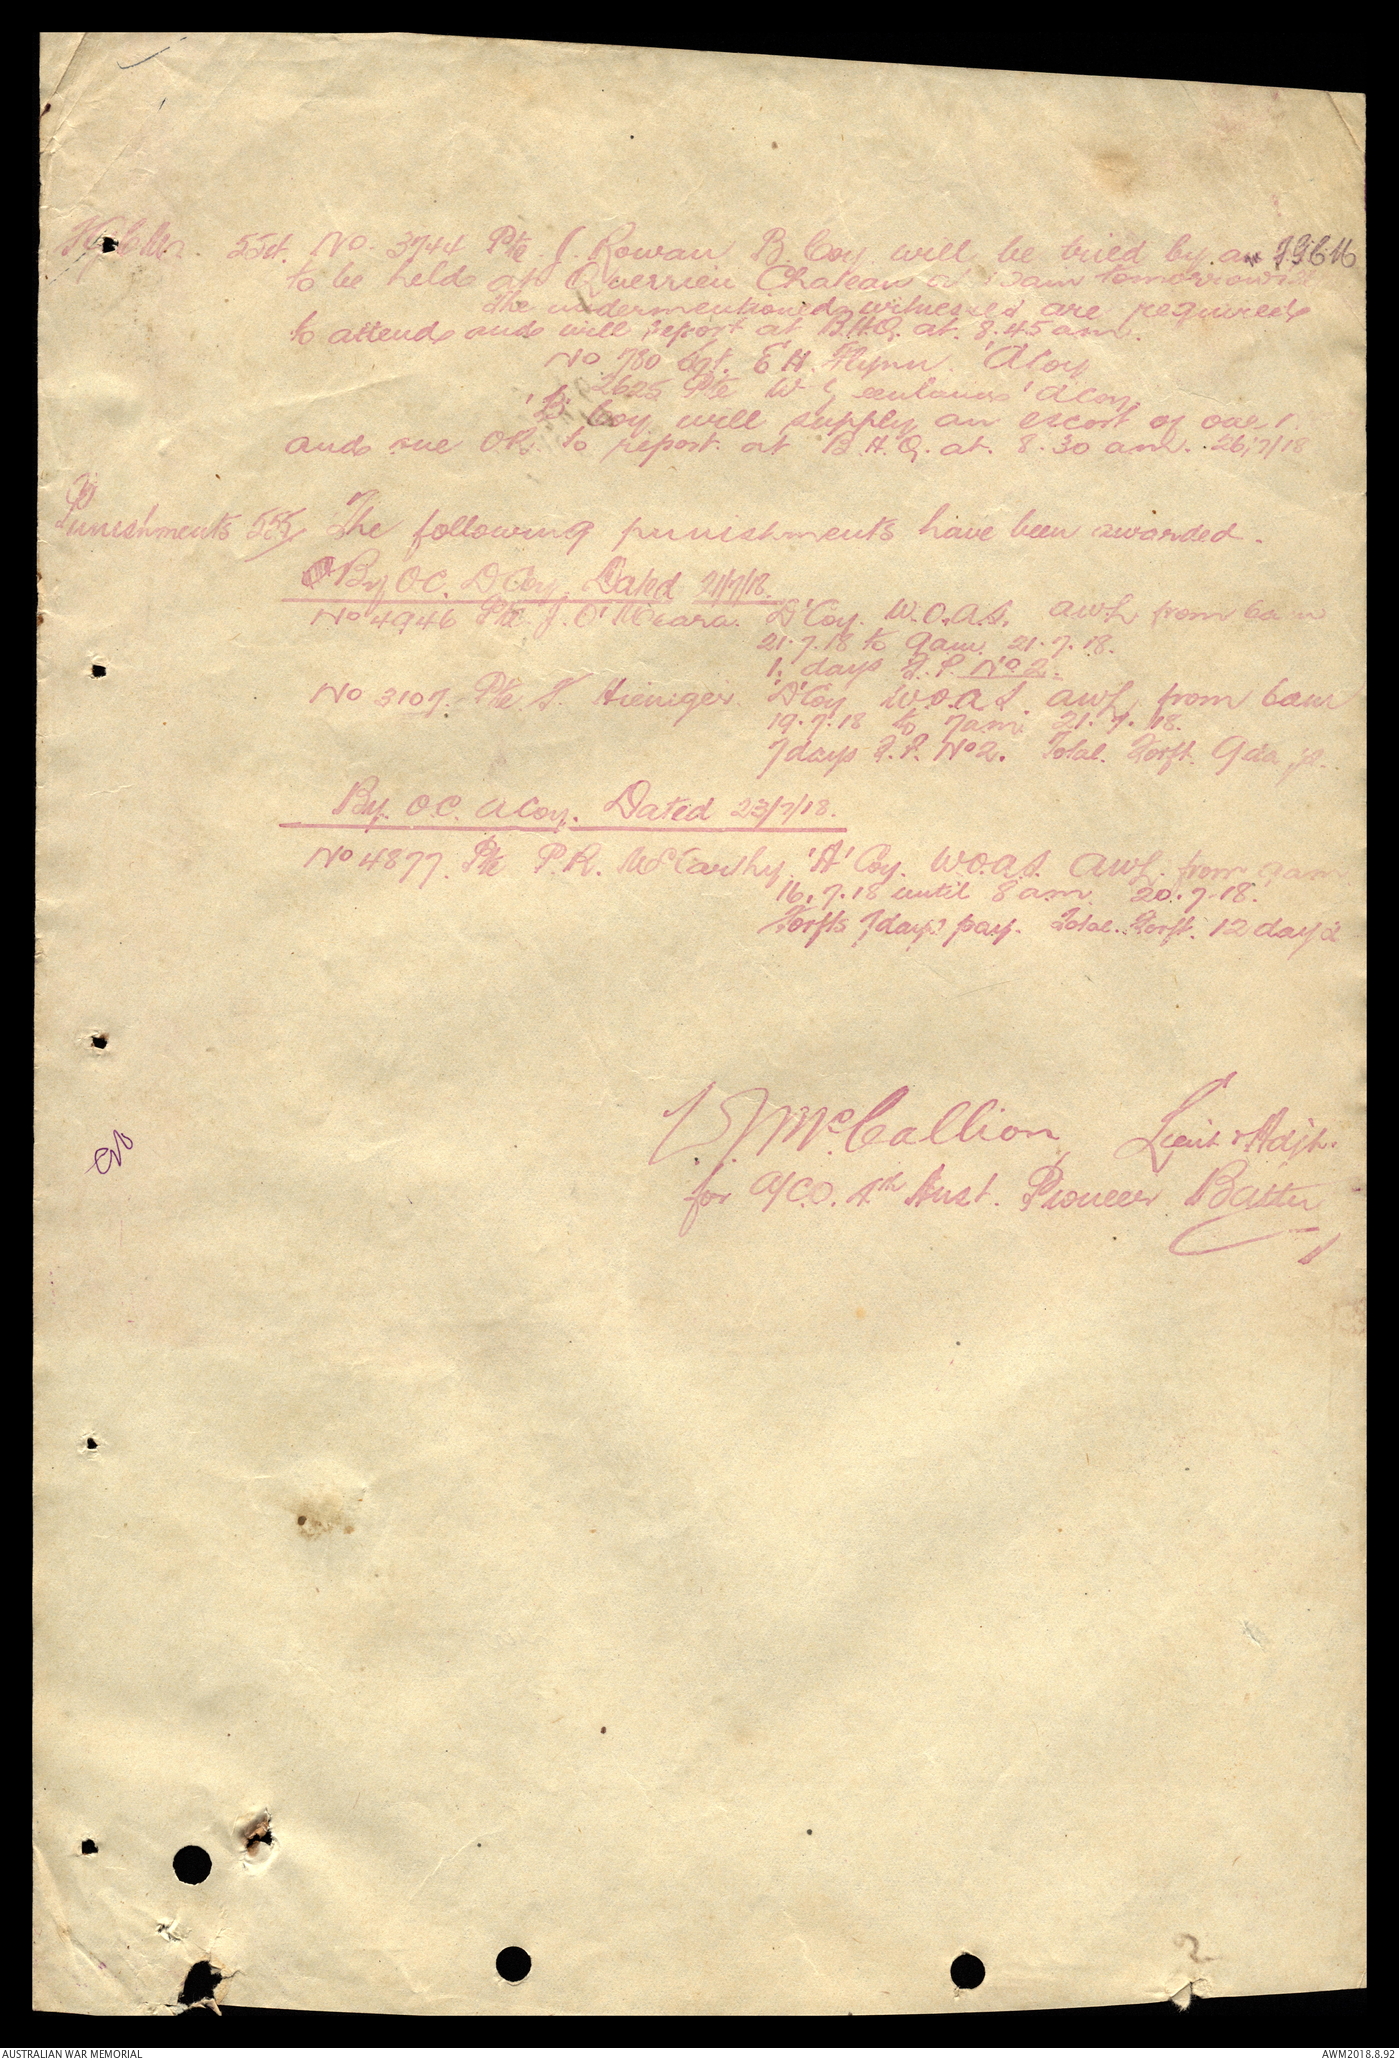 554. No. 3744 Pte. J. Rowan B. Coy. will be tried by an FGCM
to be held at Querrieu Chateau tomorrow
The undermentioned witnesses are required
to attend and will report at B.H.Q. at 8.45 am.
No. 780 Sgt. E H. Flynn. 'A Coy
2625 Pte W 'A Coy.
'B' Coy will supply an escort of one
and one OR. to report at B.H.Q. at. 8.30 am. 26/7/18
Punishments 555 The following punishments have been awarded.
By OC. D Coy. Dated 21/7/18.
No 4946 Pte. J. O'Meara. 'D' Coy. W.O.A.S. AWL from 6am
21.7.18 to 9am. 21.7.18.
1. days F.P. No 2.
No 3107. Pte. Heiniger 'D' Coy W.O.A.S. AWL from 6am
19.7.18 to 7am 21.7.18.
7 days F.P. No 2. Total. Forft. 9 days.
By. OC. A Coy. Dated 23/7/18.
No 4877. Pte P.R. McCarthy 'A' Coy. W.O.A.S. AWL. from 9am
16.7.18 until 8 am 20.7.18.
Forfts 7 days pay. Total. Forft. 12 days
McCallion Lieut & Adjt.
for A/C.O. 4th Aust. Pioneer Battn
2
AUSTRALIAN WAR MEMORIAL
AWM2018.8.92